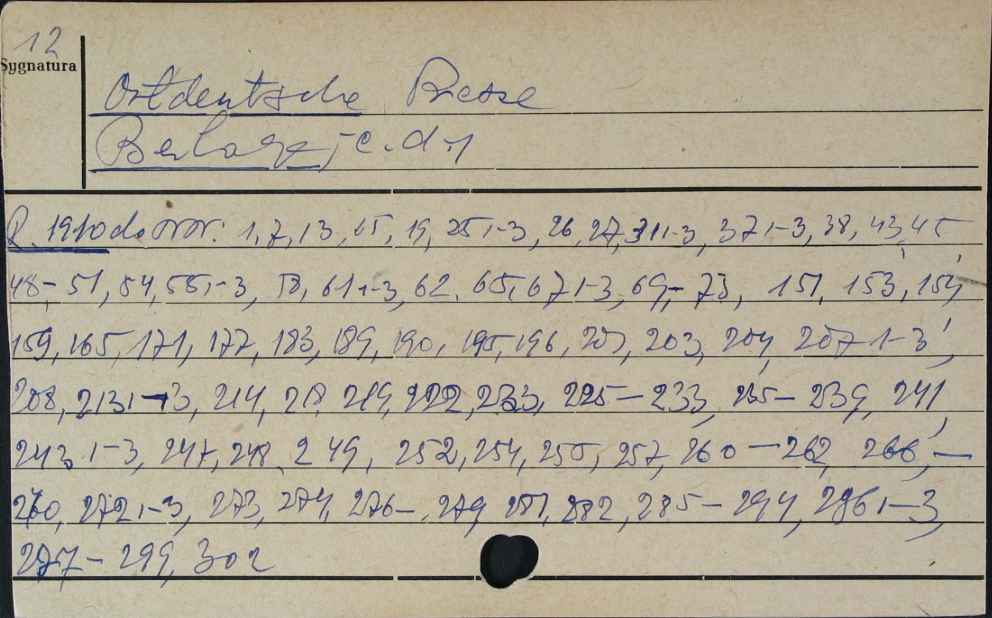 12
Sygnatura
Ostdeutsche Presse
Beilage, c.d.1
R. 1910 do Nr: 1, 7, 13, 15, 19, 25 1-3, 26, 27, 31 1-3, 37 1-3, 38, 43, 45
48-51, 54, 55, 1-3, 58, 61 1-3, 62, 65, 67 1-3, 69-73, 151, 153, 154,
159, 165, 171, 177, 183, 189, 190, 195, 196, 201, 203, 204, 207 1-3,
208, 213 1-3, 214, 217, 219, 222, 223, 225-233, 235-239, 241,
243 1-3, 247, 248, 249, 252, 254, 255, 257, 260-262, 266,-
270, 272 1-3, 273, 274, 276-, 279, 281, 282, 285-294, 296 1-3,
297-299, 302